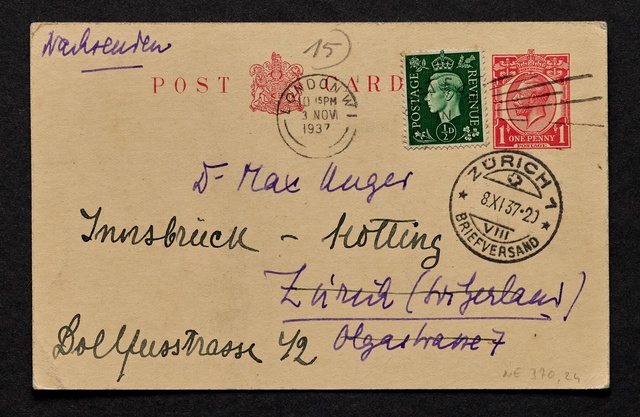 Nachsenden
15
POST CARD
LONDON W1
10 15PM
3 NOV
1937
POSTAGE
REVENUE
½D
1 ONE PENNY 1
POSTAGE
ZÜRICH 1
8.XI.37-20
VIII
BRIEFVERSAND
Dr Max Unger
Innsbrück - Hötting
Zürich (Switzerland)
Dollfusstrasse 4/2
Olgastrasse 7
NE 370,24